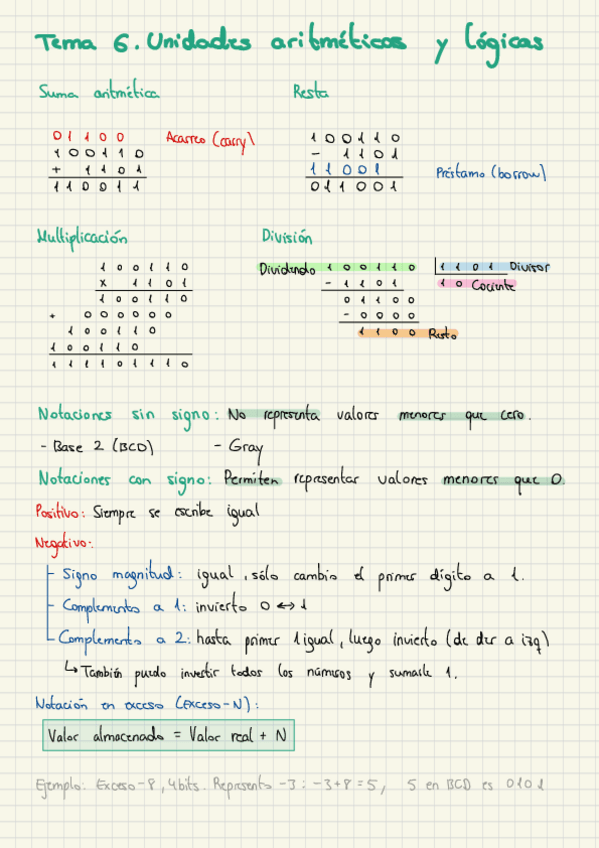 Tema 6. Unidades aritméticas y lógicas
Suma aritmética
0 1 1 0 0 Acarreo (carry)
1 0 0 1 1 0
+ 1 1 0 1
1 1 0 0 1 1
Resta
1 0 0 1 1 0
- 1 1 0 1
1 1 0 0 1 Préstamo (borrow)
0 1 1 0 0 1
Multiplicación
1 0 0 1 1 0
x 1 1 0 1
1 0 0 1 1 0
+ 0 0 0 0 0 0
1 0 0 1 1 0
1 0 0 1 1 0
1 1 1 1 0 1 1 1 0
División
Dividendo 1 0 0 1 1 0 1 1 0 1 Divisor
- 1 1 0 1 1 0 Cociente
0 1 1 0 0
- 0 0 0 0
1 1 0 0 Resto
Notaciones sin signo: No representa valores menores que cero.
- Base 2 (BCD) - Gray
Notaciones con signo: Permiten representar valores menores que 0.
Positivo: Siempre se escribe igual
Negativo:
Signo magnitud: igual, sólo cambio el primer dígito a 1.
Complemento a 1: invierto 0 ↔ 1
Complemento a 2: hasta primer 1 igual, luego invierto (de der a izq)
↳ También puedo investir todos los números y sumarle 1.
Notación en exceso (Exceso-N):
Valor almacenado = Valor real + N
Ejemplo: Exceso-8, 4 bits. Represento -3 : -3+8 = 5, 5 en BCD es 0101